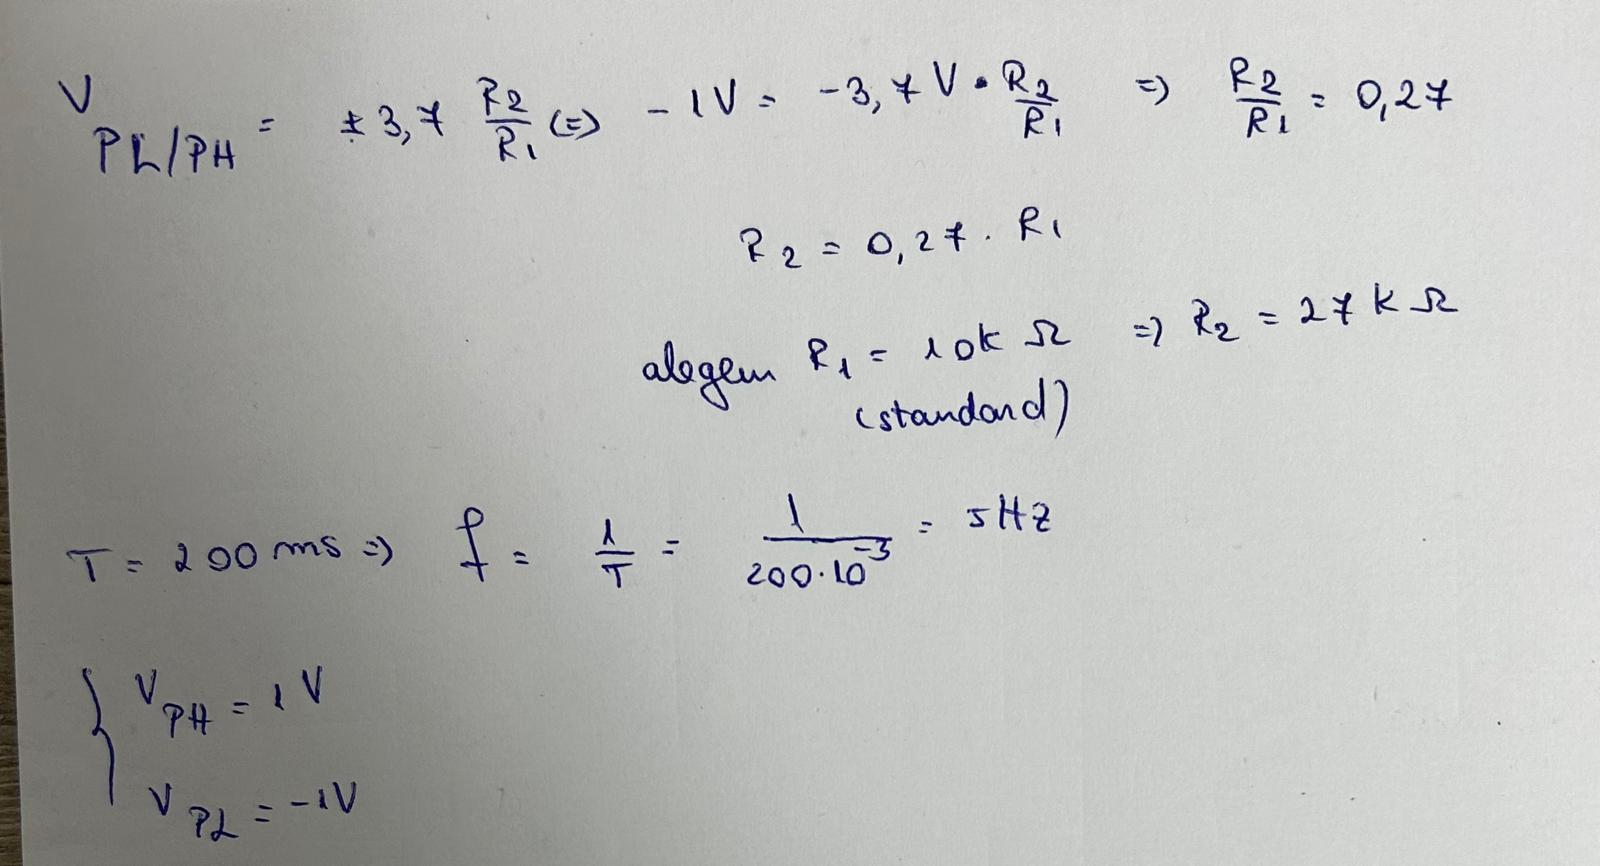 V PL/PH = ± 3,7 R2/R1 (=) -1V = -3,7 V · R2/R1 => R2/R1 = 0,27
R2 = 0,27 · R1
alegem R1 = 10k Ω => R2 = 27 k Ω
(standard)
T = 200 ms => f = 1/T = 1/200·10^-3 = 5Hz
{ VPH = 1 V
VPL = -1V